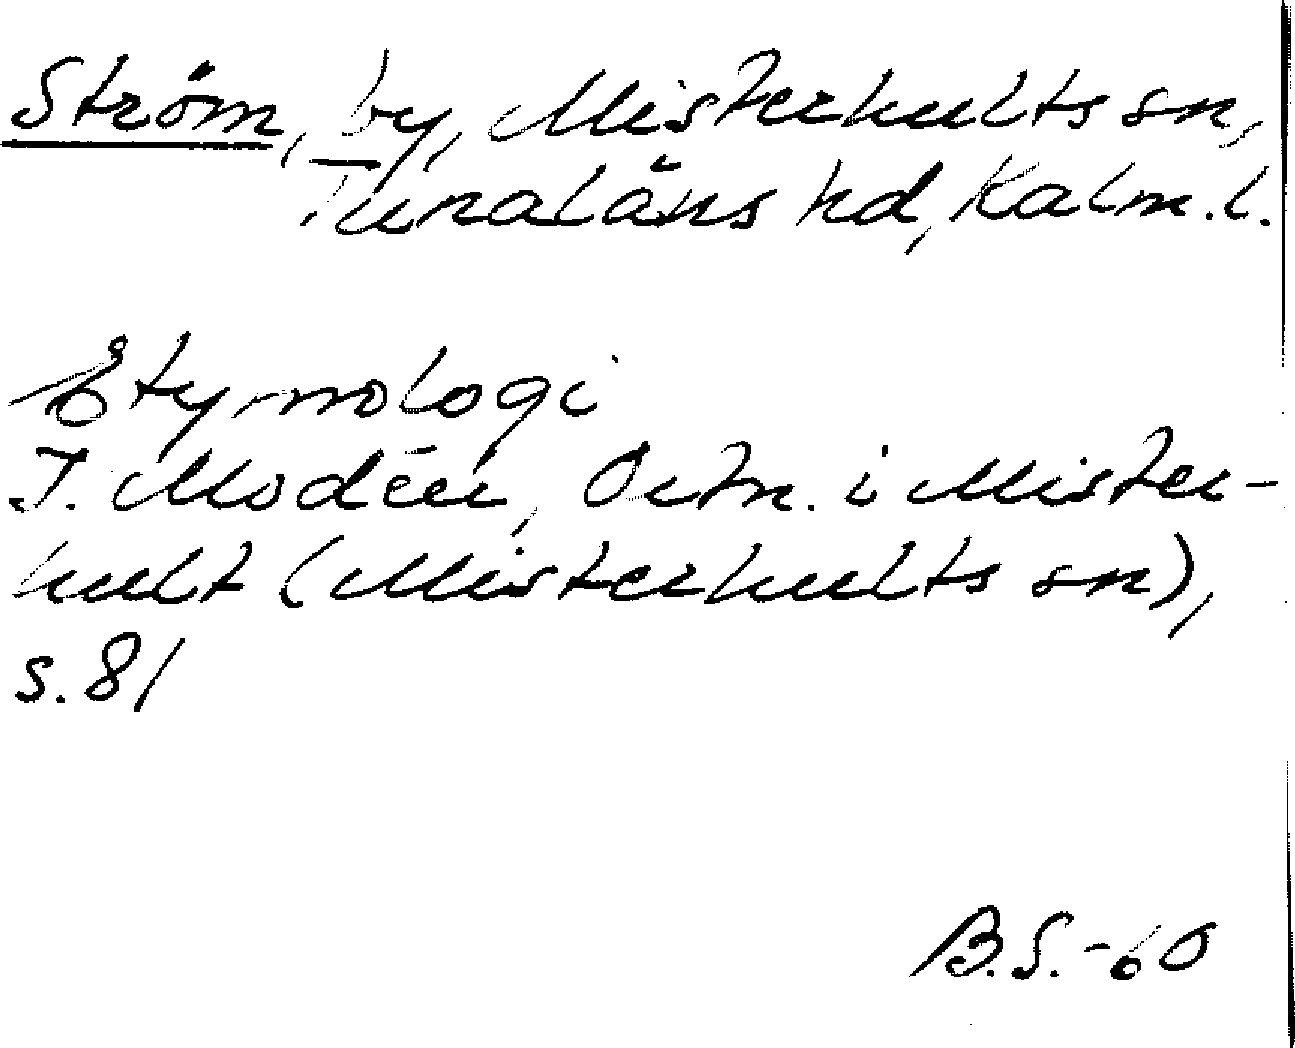 Ström, by, Misterhults sn,
Tunaläns hd, Kalm.l.
Etymologi
I. Modéer, Ortn. i Mister-
hult (Misterhults sn),
s. 81
B.S.-60